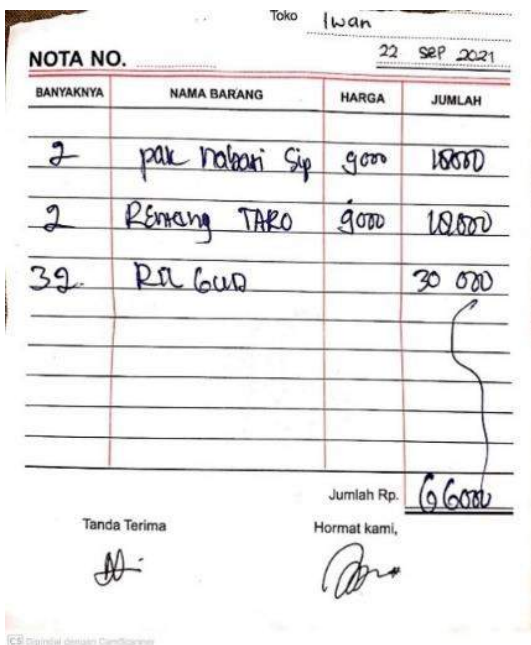 Toko Iwan
NOTA NO. 22 SEP 2021
BANYAKNYA NAMA BARANG HARGA JUMLAH
2 pak nabati Sip 9000 18000
2 REntang TARO 9000 18000
32. 30 000
Jumlah Rp. 66000
Tanda Terima Hormat kami,
CS Dipindai dengan CamScanner